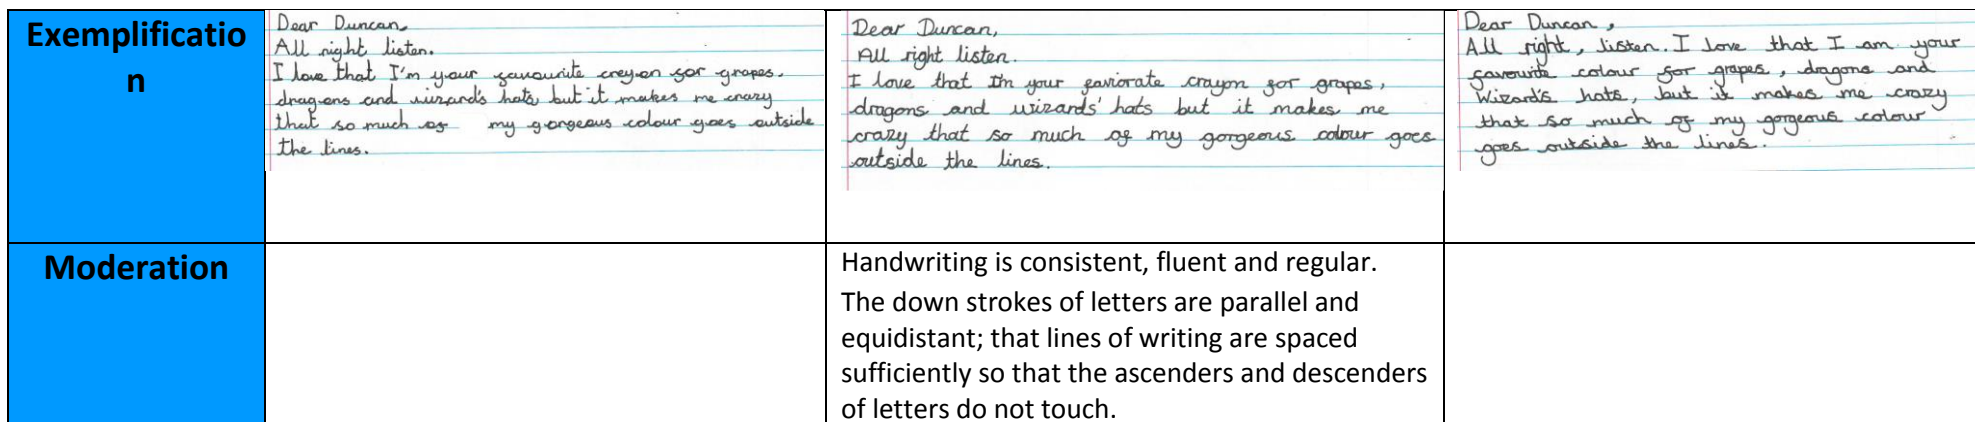 Exemplificatio
n
Dear Duncan,
All right listen.
I love that I'm your favourite creyon for grapes,
dragons and wizard's hats but it makes me crazy
that so much of my gorgeous colour goes outside
the lines.
Dear Duncan,
All right listen.
I love that I'm your faviorate crayon for grapes,
dragons and wizards' hats but it makes me
crazy that so much of my gorgeous colour goes
outside the lines.
Dear Duncan,
All right, listen. I love that I am your
favourite colour for grapes, dragons and
Wizard's hats, but it makes me crazy
that so much of my gorgeous colour
goes outside the lines.
Moderation
Handwriting is consistent, fluent and regular.
The down strokes of letters are parallel and
equidistant; that lines of writing are spaced
sufficiently so that the ascenders and descenders
of letters do not touch.